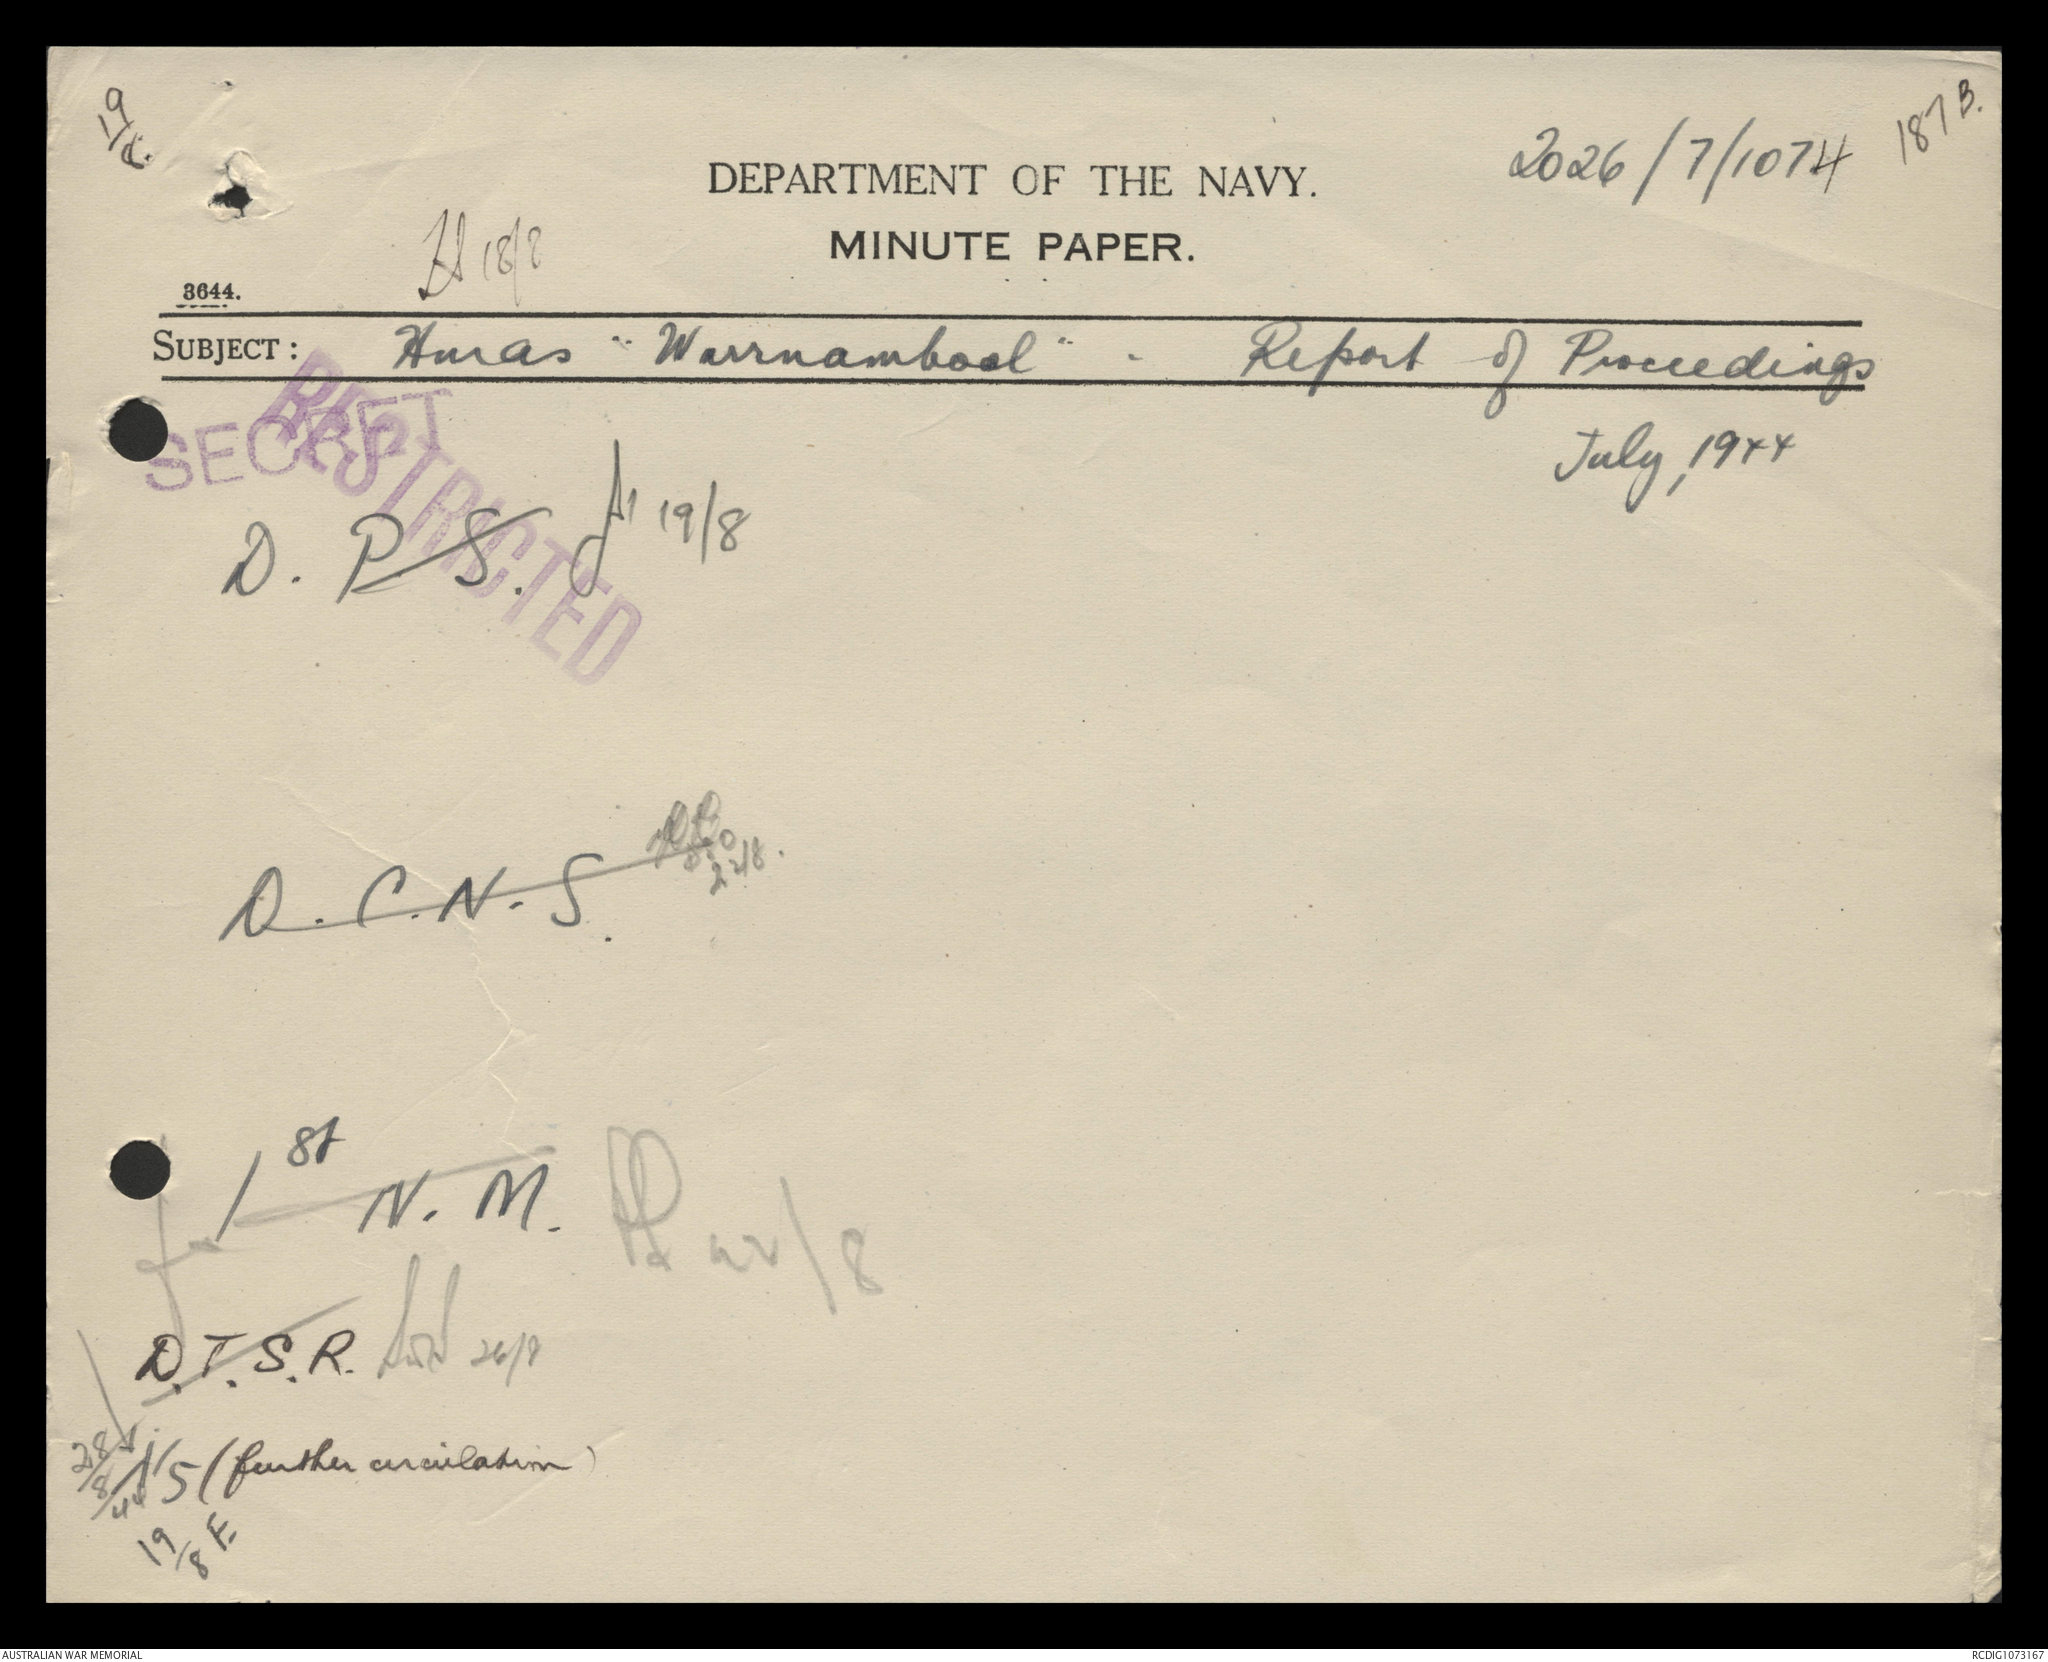 19/8.
187B.
2026/7/1074
DEPARTMENT OF THE NAVY.
MINUTE PAPER.
18/8
3644.
SUBJECT: Hmas "Warrnambool" - Report of Proceedings
July, 1944
SECRET
RESTRICTED
D. P. S. 19/8
D. C. N. S. 22/8.
1st N. M. 22/8
D.T.S.R. 26/8
28/8/44
(further circulation)
19/8 F.
AUSTRALIAN WAR MEMORIAL
RCDIG1073167